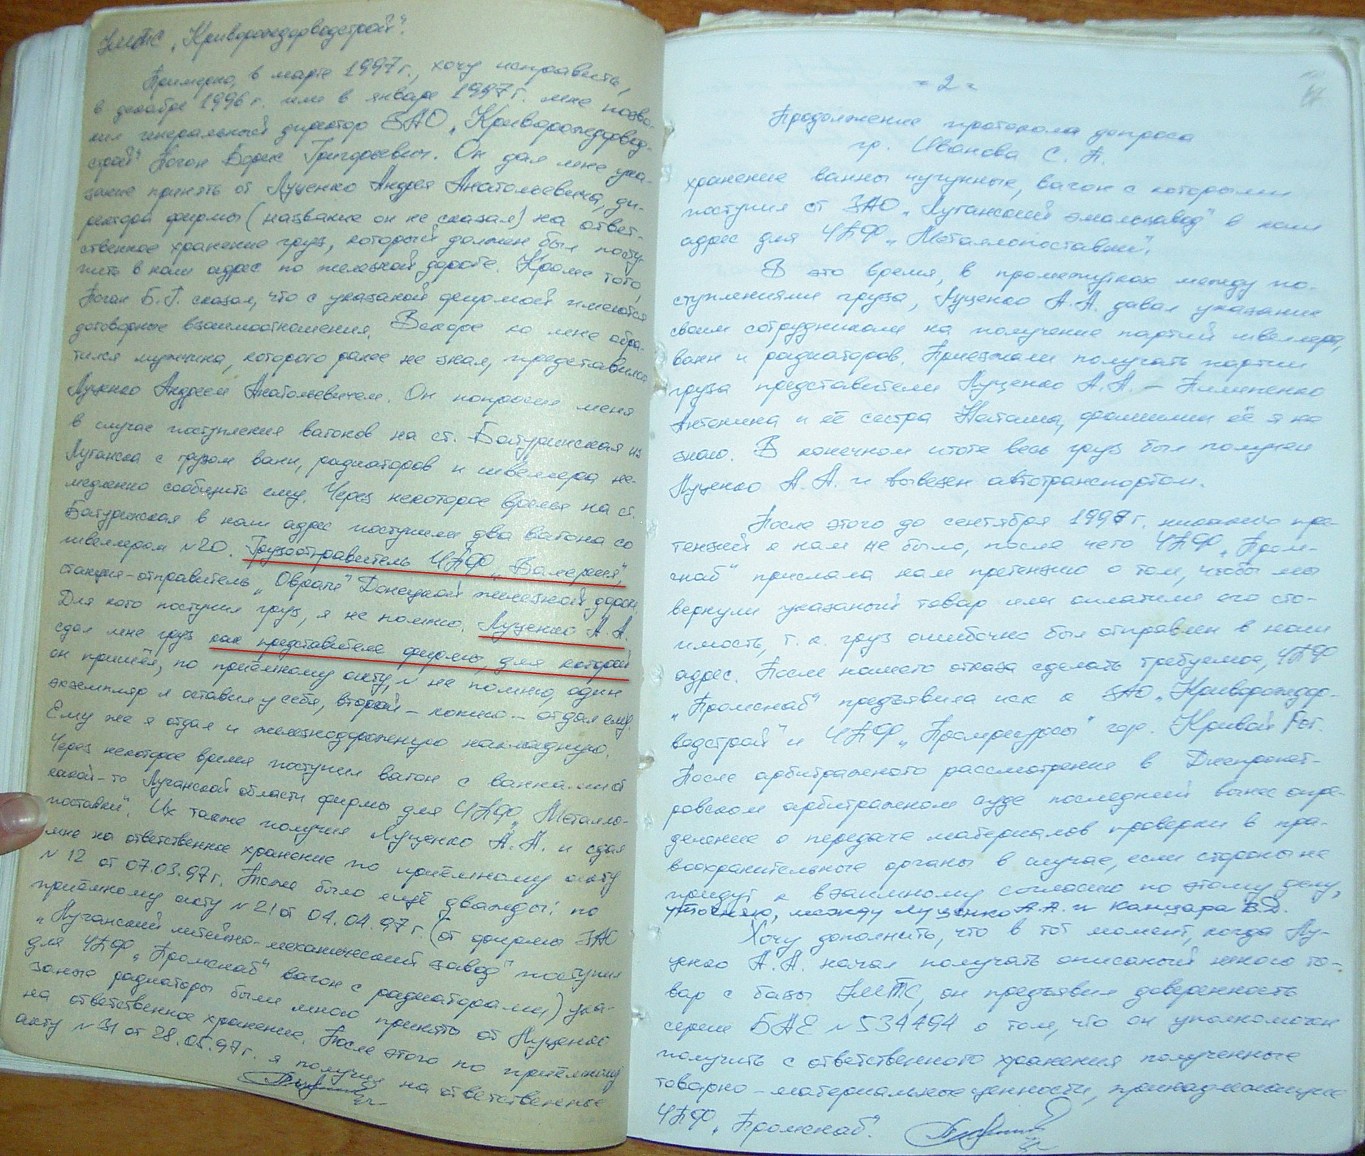 УМТС „Криворождорводстрой“.
Примерно, в марте 1997г., хочу исправить,
в декабре 1996г. или в январе 1997г. мне позво-
нил генеральный директор ЗАО „Криворождорвод-
строй“ Коган Борис Григорьевич. Он дал мне ука-
зание принять от Луценко Андрея Анатольевича, ди-
ректора фирмы (название он не сказал) на ответ-
ственное хранение груз, который должен был посту-
пить в наш адрес по железной дороге. Кроме того,
Коган Б.Г. сказал, что с указаной фирмой имеются
договорные взаимоотношения. Вскоре ко мне обра-
тился мужчина, которого ранее не знал, представился
Луценко Андреем Анатольевичем. Он попросил меня
в случае поступления вагонов на ст. Батуринская из
Луганска с грузом ванн, радиаторов и швеллера не-
медленно сообщить ему. Через некоторое время на ст.
Батуринская в наш адрес поступили два вагона со
швеллером №20. Грузоотправитель ЧПФ „Валерия“,
станция-отправитель „Овраги“ Донецкой железной дороги.
Для кого поступил груз, я не помню. Луценко А.А.
сдал мне груз как представитель фирмы, для которой
он пришёл, по приёмному акту, № не помню, один
экземпляр я оставил у себя, второй – копию – отдал ему.
Ему же я отдал и железнодорожную накладную.
Через некоторое время поступил вагон с ваннами от
какой-то Луганской области фирмы для ЧПФ „Металло-
поставки“. Их также получил Луценко А.А. и сдал
мне на ответственное хранение по приёмному акту
№12 от 07.03.97г. Также было ещё дважды: по
приёмному акту №21 от 04.04.97г. (от фирмы ЗАО
„Луганский литейно-механический завод“ поступил
для ЧПФ „Промснаб“ вагон с радиаторами) ука-
заные радиаторы были мною приняты от Луценко
на ответственное хранение. После этого по приёмному
акту №31 от 28.05.97г. я получил на ответственное
- 2 -
Продолжение протокола допроса
гр. Иванова С. П.
хранение ванны чугунные, вагон с которыми
поступил от ЗАО „Луганский эмальзавод“ в наш
адрес для ЧПФ „Металлопоставки“.
В это время, в промежутках между по-
ступлениями груза, Луценко А.А. давал указание
своим сотрудникам на получение партий швеллера,
ванн и радиаторов. Приезжали получать партии
груза представители Луценко А.А. – Пилипенко
Антонина и её сестра Наташа, фамилии её я не
знаю. В конечном итоге весь груз был получен
Луценко А.А. и вывезен автотранспортом.
После этого до сентября 1997г. никаких пре-
тензий к нам не было, после чего ЧПФ „Пром-
снаб“ прислала нам претензию о том, чтобы мы
вернули указаный товар или оплатили его сто-
имость, т.к. груз ошибочно был отправлен в наш
адрес. После нашего отказа сделать требуемое, ЧПФ
„Промснаб“ предъявила иск к ЗАО „Криворождор-
водстрой“ и ЧПФ „Промресурсы“ гор. Кривой Рог.
После арбитражного рассмотрения в Днепропет-
ровском арбитражном суде последний вынес опре-
деление о передаче материалов проверки в пра-
воохранительные органы в случае, если стороны не
придут к взаимному согласию по этому делу,
уточняю, между Луценко А.А. и Канцара В.Д.
Хочу дополнить, что в тот момент, когда Лу-
ценко А.А. начал получать описаный мною то-
вар с базы УМТС, он предъявил доверенность
серии БАЕ №534494 о том, что он уполномочен
получить с ответственного хранения полученные
товарно-материальные ценности, принадлежащие
ЧПФ „Промснаб“.